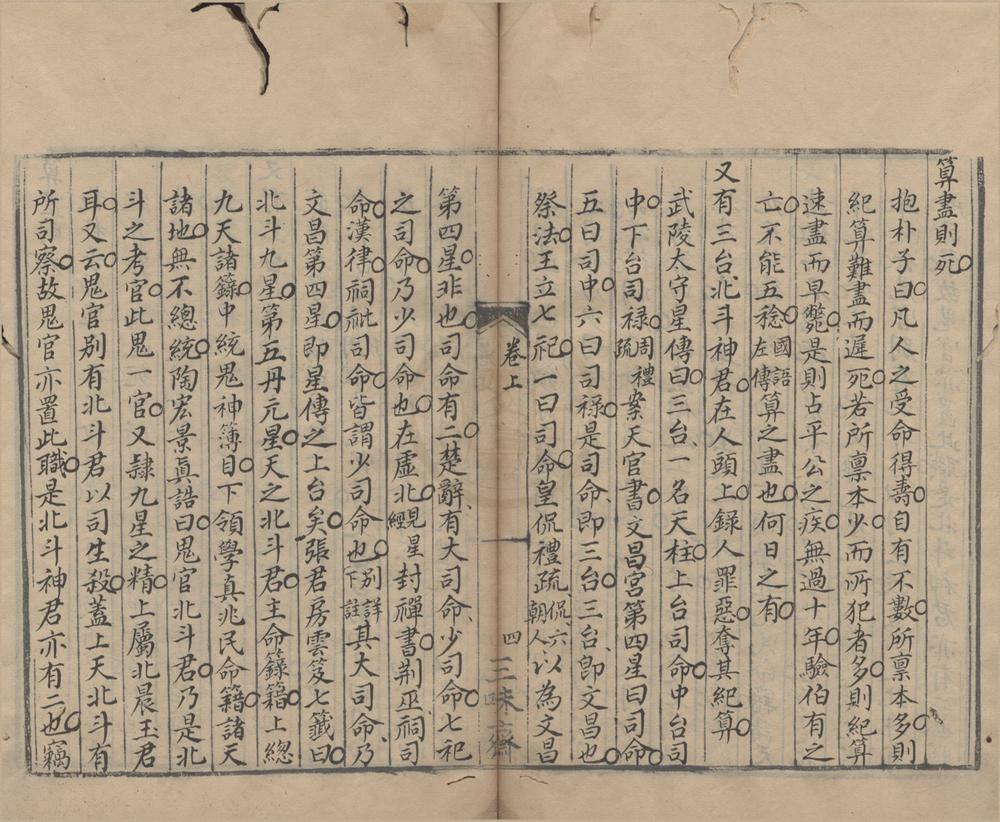 算盡則死
抱朴子曰凡人之受命得壽自有不數所稟本多則
紀算難盡而遲死若所稟本少而所犯者多則紀算
速盡而早斃是則占平公之疾無過十年驗伯有之
亡不能五稔國語左傳算之盡也何日之有
又有三台北斗神君在人頭上錄人罪惡奪其紀算
武陵太守星傳曰三台一名天柱上台司命中台司
中下台司祿周禮疏案天官書文昌宮第四星曰司命
五曰司中六曰司祿是司命即三台三台卽文昌也
祭法王立七祀一曰司命皇侃禮疏侃六朝人以為文昌
卷上
四
三味齋
第四星非也司命有二楚辭有大司命少司命七祀
之司命乃少司命也在虛北見星經封禪書荆巫祠司
命漢律祠祉司命皆謂少司命也別詳下註其大司命乃
文昌第四星即星傳之上台矣張君房雲笈七籤曰
北斗九星第五丹元星天之北斗君主命籙籍上總
九天諸籙中統鬼神簿目下領學真兆民命籍諸天
諸地無不總統陶宏景真誥曰鬼官北斗君乃是北
斗之考官此鬼一官又隸九星之精上屬北晨玉君
耳又云鬼官別有北斗君以司生殺蓋上天北斗有
所司察故鬼官亦置此職是北斗神君亦有二也竊